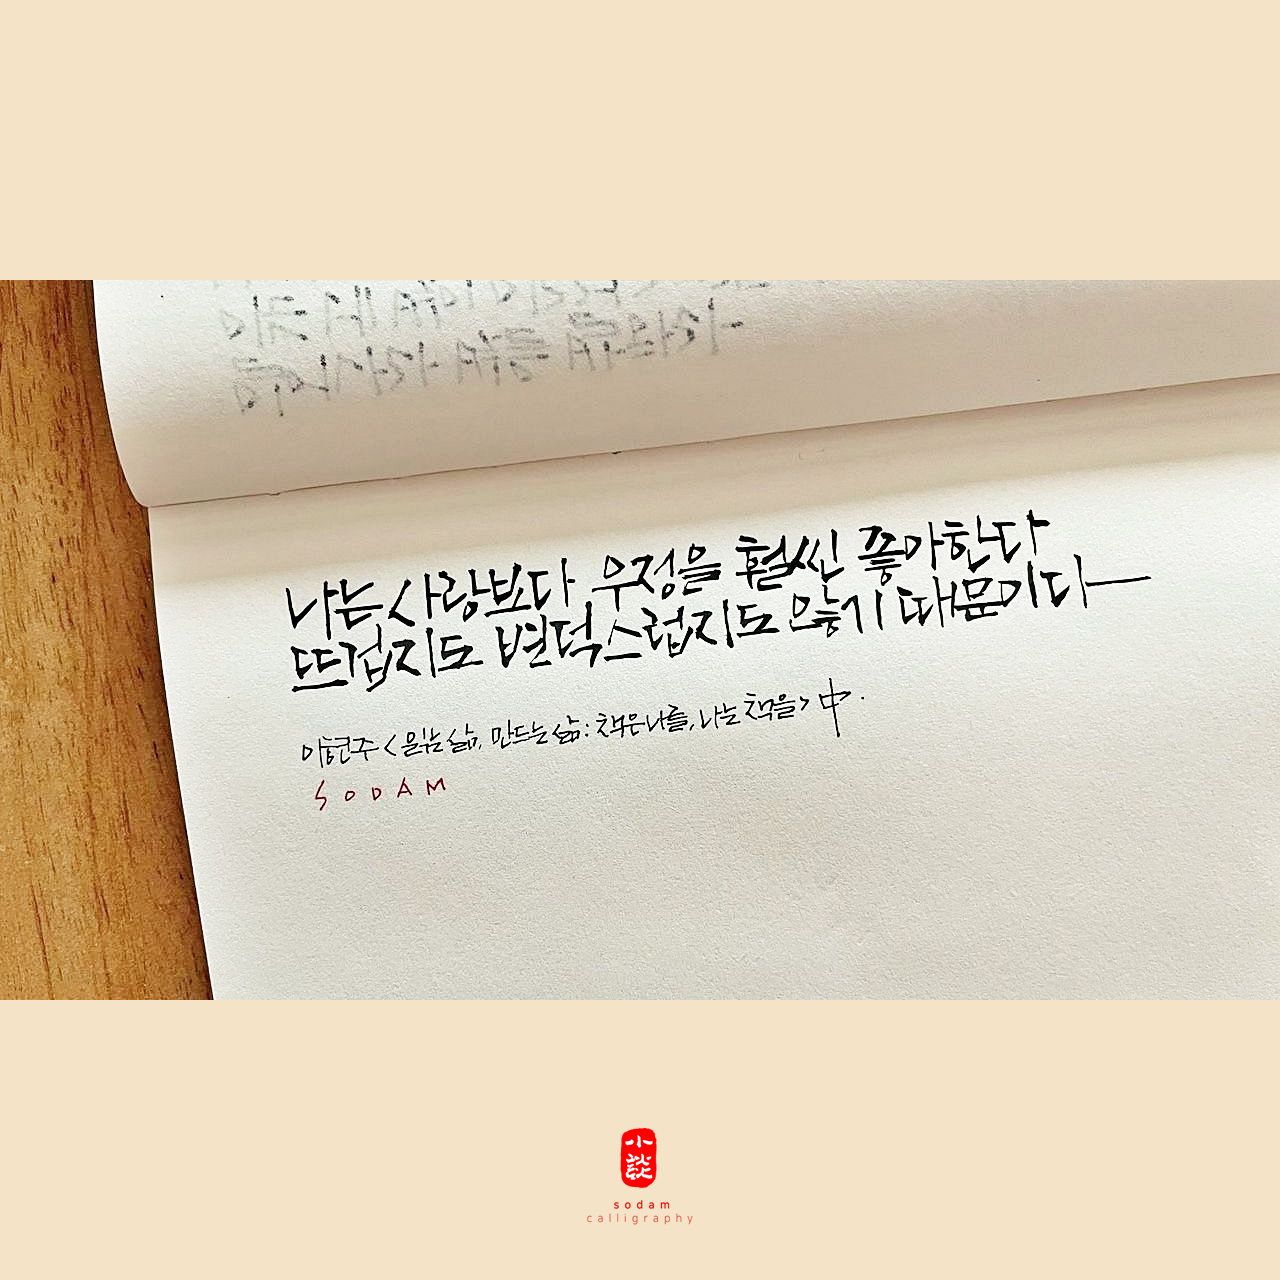 나는 사랑보다 우정을 훨씬 좋아한다
뜨겁지도 변덕스럽지도 않기 때문이다
이현주 <읽는 삶, 만드는 삶 : 책은 나를, 나는 책을> 中.
SODAM
小談
sodam
calligraphy